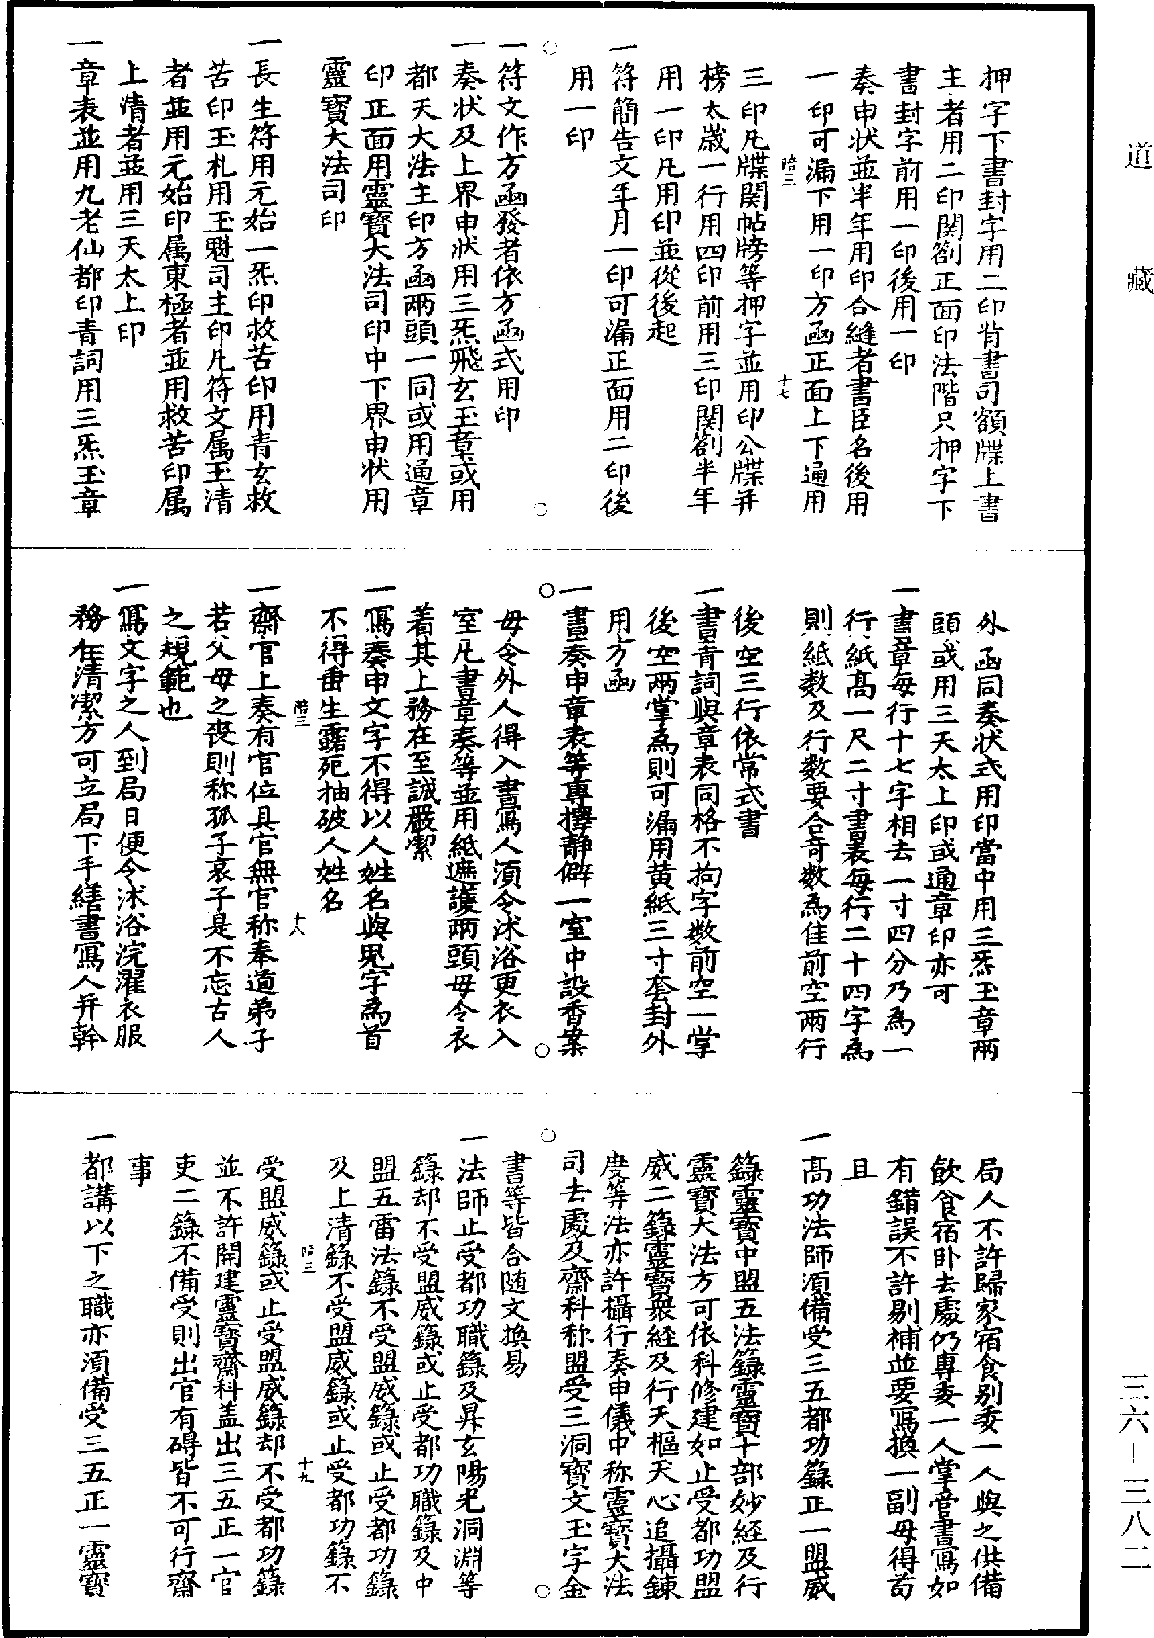 道藏
押字下書封字用二印背書司額牒上書
主者用二印関劄正面印法階只押字下
書封字前用一印後用一印
奏申狀並半年用印合縫者書臣名後用
一印可漏下用一印方函正面上下通用
三印凡牒関帖牓等押字並用印公牒并
榜太歲一行用四印前用三印関劄半年
用一印凡用印並從後起
一符簡告文年月一印可漏正面用二印後
用一印
一符文作方函發者依方函式用印
一奏狀及上界申狀用三炁飛玄玉章或用
都天大法主印方函兩頭一同或用通章
印正面用靈寶大法司印中下界申狀用
靈寶大法司印
一長生符用元始一炁印救苦印用青玄救
苦印玉札用玉魁司主印凡符文属玉清
者並用元始印属東極者並用救苦印属
上清者並用三天太上印
一章表並用九老仙都印青詞用三炁玉章
外函同奏狀式用印當中用三炁玉章兩
頭或用三天太上印或通章印亦可
一書章每行十七字相去一寸四分乃為一
行紙髙一尺二寸書表每行二十四字為
則紙數及行數要合奇數為佳前空兩行
後空三行依常式書
一書青詞與章表同格不拘字數前空一掌
後空兩掌為則可漏用黄紙三寸套封外
用方函
一書奏申章表等專擇静僻一室中設香案
毋令外人得入書寫人須令沐浴更衣入
室凡書章奏等並用紙遮護兩頭毋令衣
着其上務在至誠嚴潔
一寫奏申文字不得以人姓名與鬼字為首
不得畨生露死抽破人姓名
一齋官上奏有官位具官無官称奉道弟子
若父母之喪則称孤子哀子是不忘古人
之規範也
一寫文字之人到局日便令沐浴浣濯衣服
務在清潔方可立局下手繕書寫人并幹
局人不許歸家宿食别委一人與之供備
飲食宿卧去處仍專委一人掌管書寫如
有錯誤不許剔補並要寫換一副毋得苟
且
一髙功法師須備受三五都功籙正一盟威
籙靈寶中盟五法籙靈寶十部妙經及行
靈寶大法方可依科修建如止受都功盟
威二籙靈寶衆經及行天樞天心追攝鍊
度等法亦許攝行奏申儀中称靈寶大法
司去處及齋科称盟受三洞寶文玉字金
書等皆合随文換易
一法師止受都功職籙及昇玄陽光洞淵等
籙却不受盟威籙或止受都功職籙及中
盟五雷法籙不受盟威籙或止受都功籙
及上清籙不受盟威籙或止受都功籙不
受盟威籙或止受盟威籙却不受都功籙
並不許開建靈寶齋科盖出三五正一官
吏二籙不備受則出官有碍皆不可行齋
事
一都講以下之職亦須備受三五正一靈寶
十七
十八
十九
三六—三八二